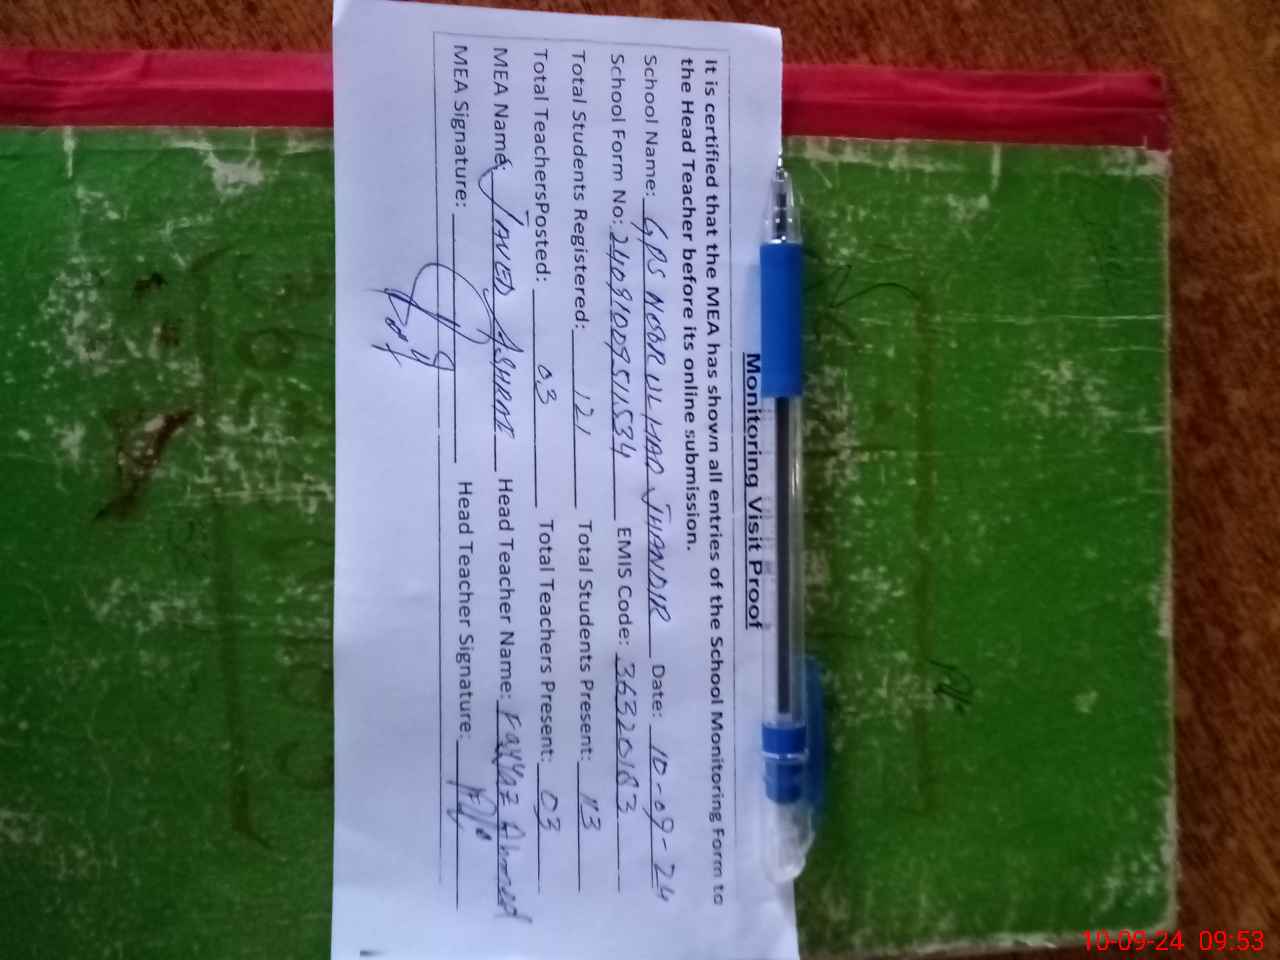 Monitoring Visit Proof
It is certified that the MEA has shown all entries of the School Monitoring Form to
the Head Teacher before its online submission.
School Name: GPS NOOR UL HAQ JHANDIR Date: 10-09-24
School Form No: 2409100951534 EMIS Code: 36320183
Total Students Registered: 121 Total Students Present: 113
Total TeachersPosted: 03 Total Teachers Present: 03
MEA Name: JAVED ASHRAF Head Teacher Name: Fayyaz Ahmed
MEA Signature: Head Teacher Signature:
10-09-24 09:53